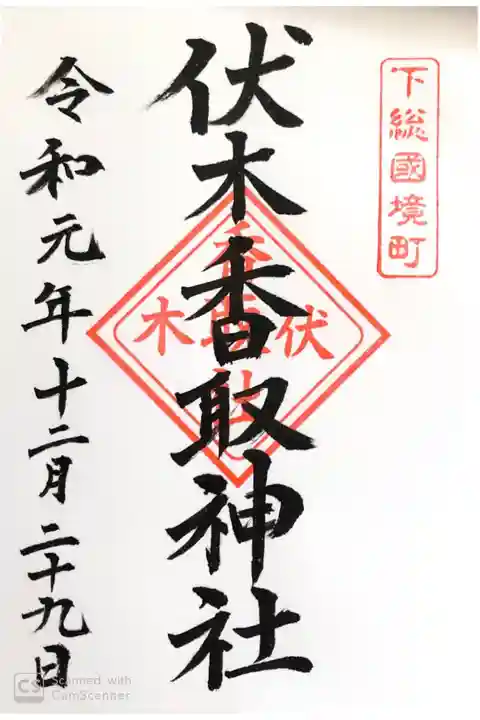 下総國境町
伏木香取神社
伏木
令和元年十二月二十九日
CS Scanned with
CamScanner